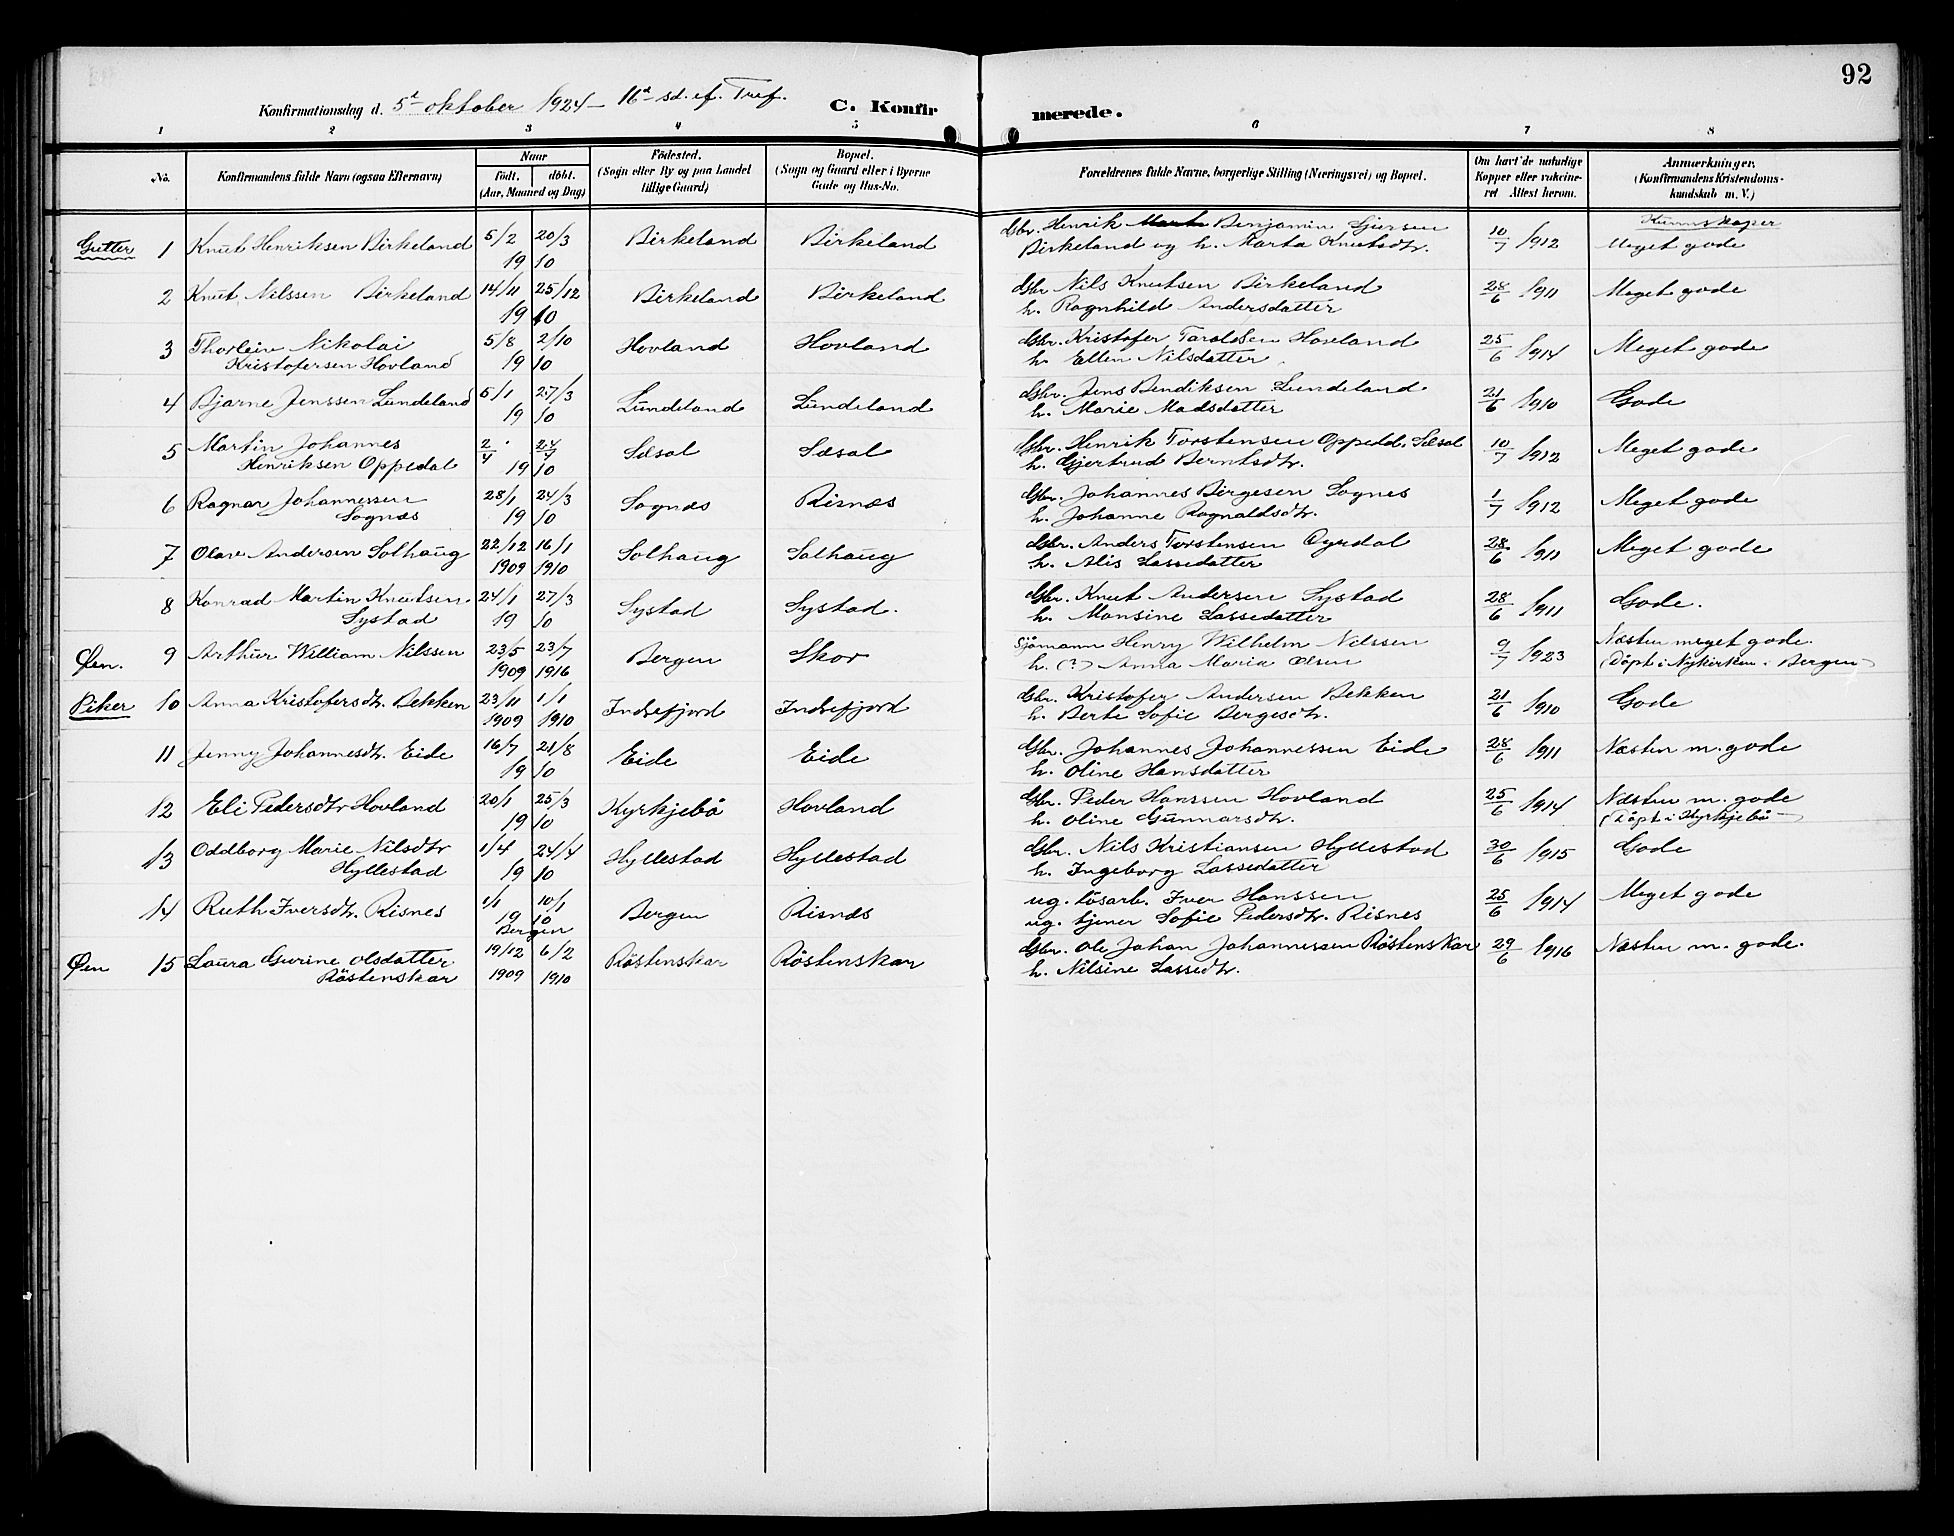 92
Konfirmationsdag d. 5t oktober 1924 – 16d sd. ef. Tref. C. Konfirmerede.
1 2 3 4 5 6 7 8
No. Konfirmandens fulde Navn (ogsaa Efternavn) Naar født. døbt. (Aar, Maaned og Dag) Fødested. (Sogn eller By og paa Landet tillige Gaard) Bopæl. (Sogn og Gaard eller i Byerne Gade og Hus-No. Forældrenes fulde Navne, borgerlige Stilling (Næringsvei) og Bopæl. Om havt de naturlige Kopper eller vakcineret Attest herom. Anmærkninger, (Konfirmandens Kristendomskundskab m. V.)
Kunnskaper
Gutter 1 Knut Henriksen Birkeland 5/2 20/3 1910 Birkeland Birkeland Gbr. Henrik Benjamin Sjursen 10/7 1912 Meget gode
Birkeland og h. Marta Knutsdtr.
2 Knut Nilssen Birkeland 14/11 25/12 1910 Birkeland Birkeland Gbr Nils Knutsen Birkeland 28/6 1911 Meget gode
h. Ragnhild Andersdatter
3 Thorleiv Nikolai 5/8 2/10 1910 Hovland Hovland Gbr. Kristofer Taraldsen Hovland 25/6 1914 Meget gode
Kristofersen Hovland h. Ellen Nilsdatter
4 Bjarne Jenssen Lundeland 5/1 27/3 1910 Lundeland Lundeland Gbr. Jens Bendiksen Lundeland 21/6 1910 Gode
h. Marie Madsdatter
5 Martin Johannes 2/4 24/4 1910 Sæsol Sæsol Gbr. Henrik Torstensen Oppedal. Sæsol 10/7 1912 Meget gode
Henriksen Oppedal h. Gjertrud Berntsdtr.
6 Ragnar Johannessen 28/1 24/3 1910 Sognæs Risnæs Gbr. Johannes Birgesen Sognes 1/7 1912 Meget gode
Sognæs h. Johanne Ragnaldsdtr.
7 Olav Andersen Solhaug 22/12 1909 16/1 1910 Solhaug Solhaug Gbr. Anders Torstensen Oyrdal 28/6 1911 Meget gode
h. Alis Lassedatter
8 Konrad Martin Knutsen 24/1 27/3 1910 Systad Systad. Gbr. Knut Andersen Systad 28/6 1911 Gode.
Systad h. Monsine Lassedatter
Øen. 9 Arthur William Nilssen 23/5 1909 23/7 1916 Bergen Skor Sjömann Henry Wilhelm Nilssen 9/7 1923 Næsten meget gode.
h. (?) Anna Maria Olsen (Döpt i Nykirken i Bergen)
Piker 10 Anna Kristofersdtr. Bekken 23/11 1909 1/1 1910 Indrefjord Indrefjord Gbr. Kristofer Andersen Bekken 21/6 1910 Gode
h. Berte Sofie Bergesdtr.
11 Jenny Johannesdtr. Eide 16/7 21/8 1910 Eide Eide Gbr. Johannes Johannessen Eide 28/6 1911 Næsten m. gode
h. Oline Hansdatter
12 Eli Pedersdtr Hovland 20/1 25/3 1910 Kyrkjebö Hovland Gbr. Peder Hanssen Hovland 25/6 1914 Næsten m. gode
h. Oline Gunnarsdtr. (Döpt i Kyrkjebö –)
13 Oddborg Marie Nilsdtr 1/4 24/4 1910 Hyllestad Hyllestad Gbr. Nils Kristiansen Hyllestad 30/6 1915 Gode
Hyllestad h. Ingeborg Lassedatter
14 Ruth Iversdtr. Risnes 1/1 10/1 1910 Bergen Bergen Risnæs ug. lösarb. Iver Hanssen 25/6 1914 Meget gode
ug. tjener Sofie Pedersdtr. Risnes
Øen 15 Laura Gurine Olsdatter 19/12 1909 6/2 1910 Röstenskar Röstenskar Gbr. Ole Johan Johannessen Röstenskar 29/6 1916 Næsten m. gode.
Röstenskar h. Nilsine Lassedtr.